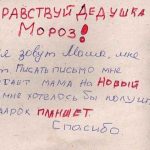 РАВСТВУЙ ДЕДУШКА
МОРОЗ!
зовут Маша, мне
т. Писать письмо мне
гает мама на Новый
мне хотелось бы получи
дарок планшет
Спасибо.